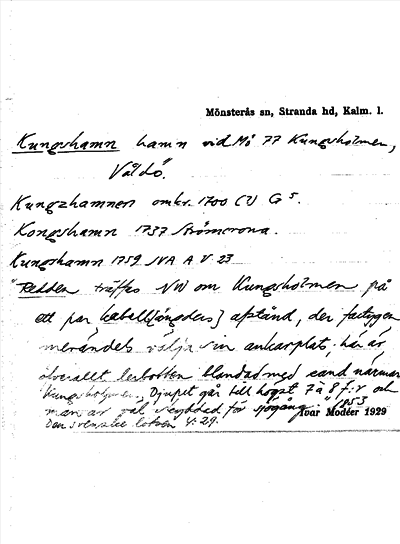 Mönsterås sn, Stranda hd, Kalm. l.
Kungshamn hamn vid Mö 77 Kungsholmen,
Våldö.
Kungzhamnen omkr. 1700 CU G 5.
Kongshamn 1737 Strömcrona.
Kungshamn 1759 SVA A V 23
"Redden träffes NW om Kungsholmen på
ett par kabell[ängders] afstånd, der fartygen
merändels välja sin ankarplats; här är
öfverallt lerbotten blandad med sand närmare
Kungsholmen. Djupet går till högst 7 à 8 f:r och
man är väl skyddad för sjögång." 1853
Den svenske lotsen 4:29.
Ivar Modéer 1929